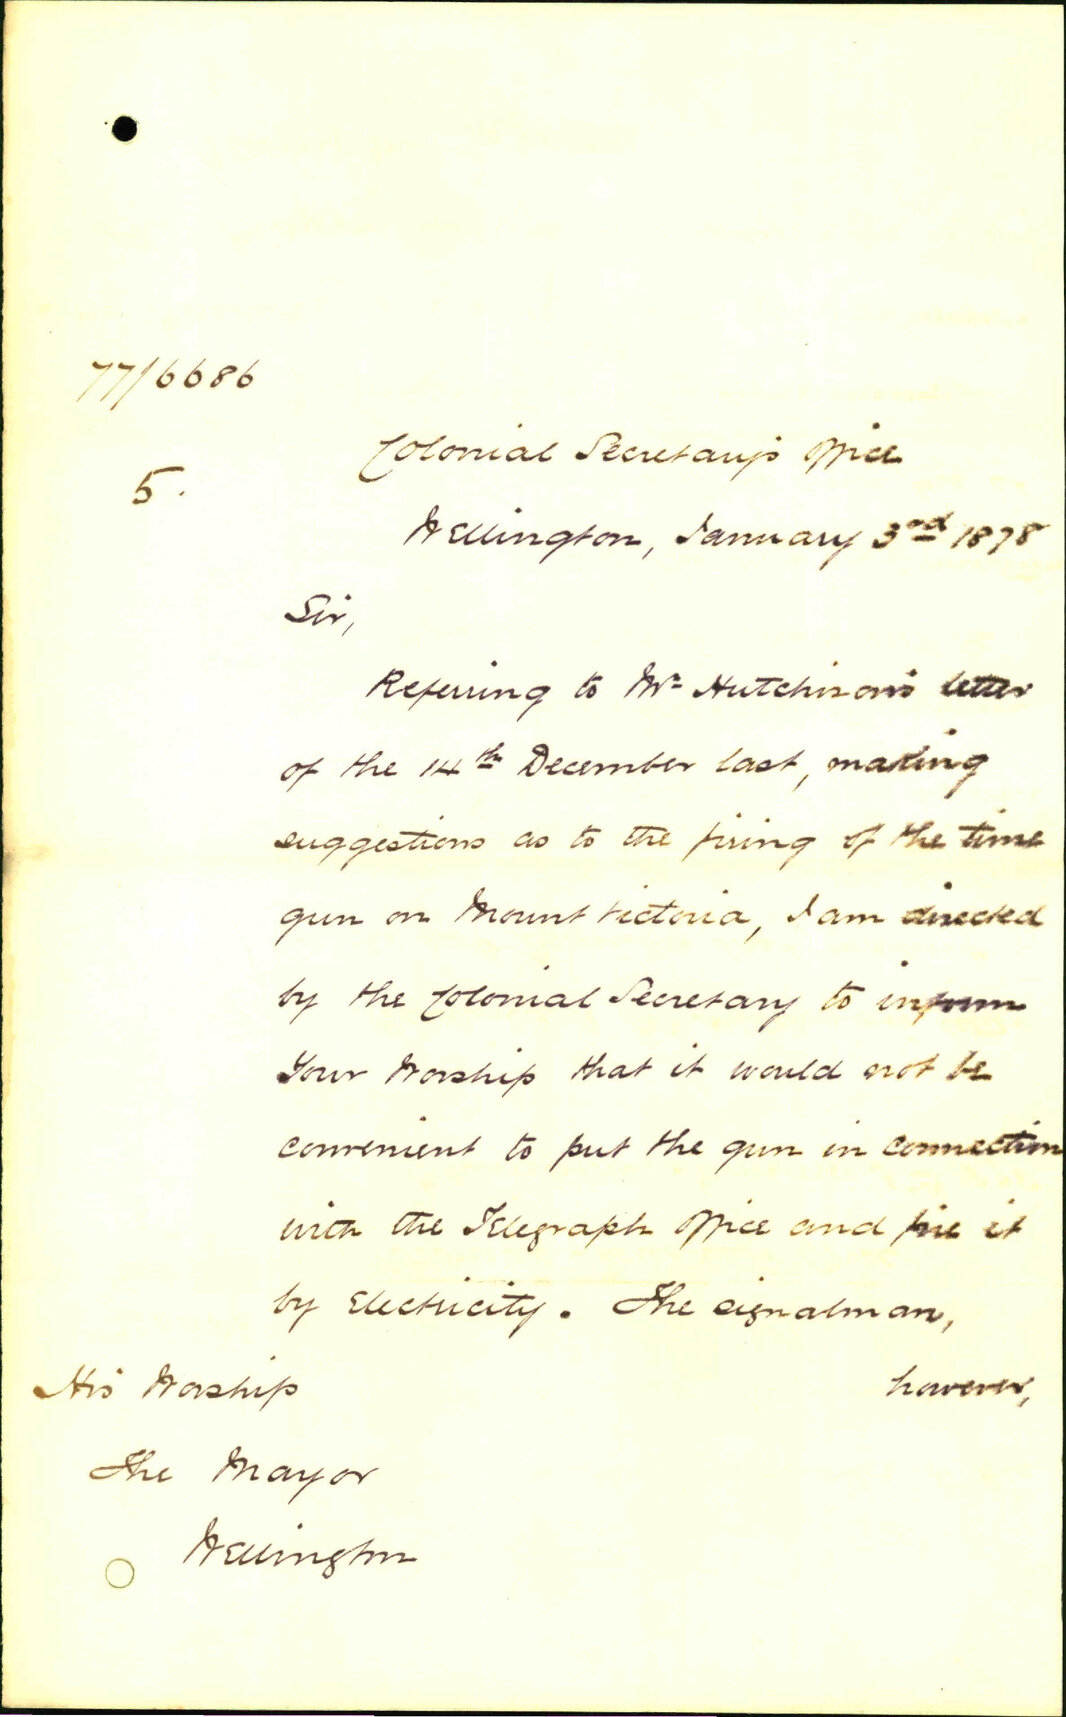 77/6686
5.
Colonial Secretary's Office
Wellington, January 3rd 1878
Sir,
Referring to Mr Hutchison's letter
of the 14th December last, making
suggestions as to the firing of the time
gun on Mount Victoria, I am directed
by the Colonial Secretary to inform
Your Worship that it would not be
convenient to put the gun in connection
with the Telegraph Office and fire it
by Electricity. The signalman,
however,
His Worship
The Mayor
Wellington